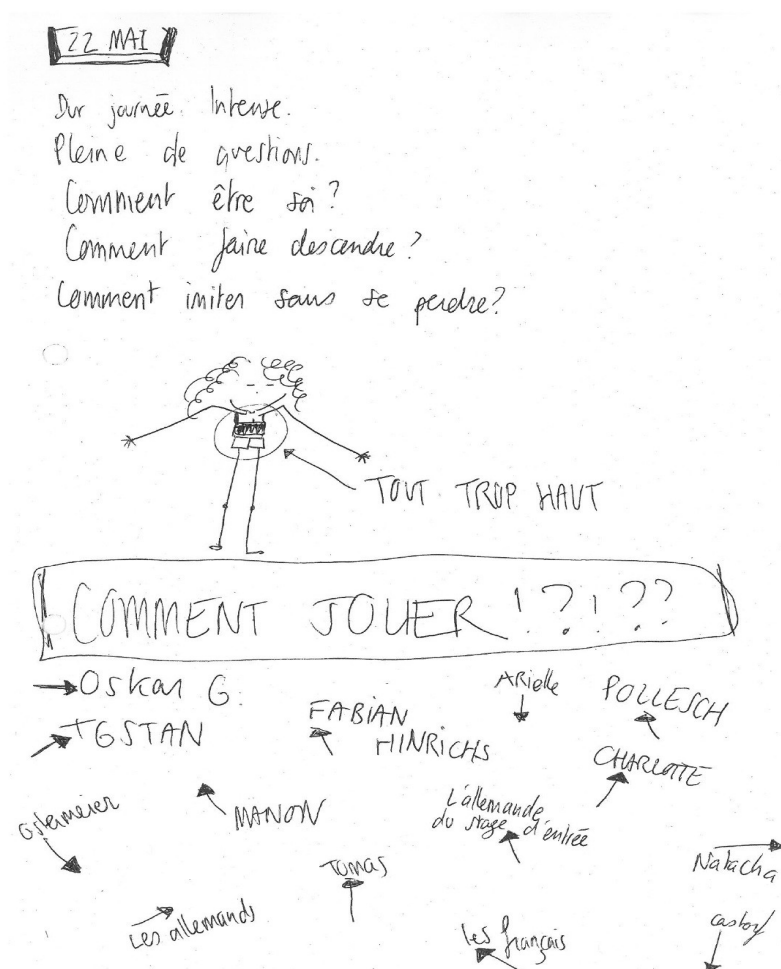 22 MAI
Dur journée. Intense.
Pleine de questions.
Comment être soi?
Comment faire descendre?
Comment imiter sans se perdre?
TOUT TROP HAUT
COMMENT JOUER !?!??
Oskar G.
TGSTAN
FABIAN
HINRICHS
ARielle
POLLESCH
CHARLOTTE
Ostermeier
MANON
L'allemande
du stage d'entrée
Tomas
Natacha
Les allemands
les français
castorf